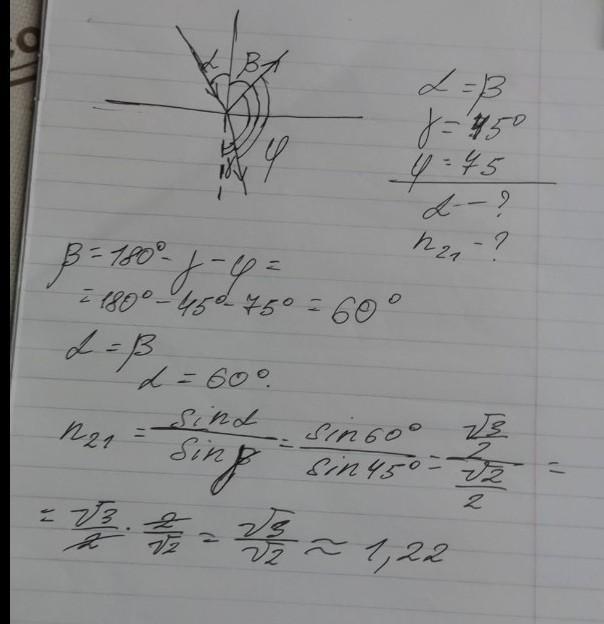 со
α β
φ
γ
α = β
γ = 45°
φ = 75
α - ?
n₂₁ - ?
β = 180° - γ - φ =
= 180° - 45° - 75° = 60°
α = β
α = 60°.
n₂₁ = sinα / sinγ = sin60° / sin45° = (√3/2) / (√2/2) =
= √3/2 · 2/√2 = √3/√2 ≈ 1,22